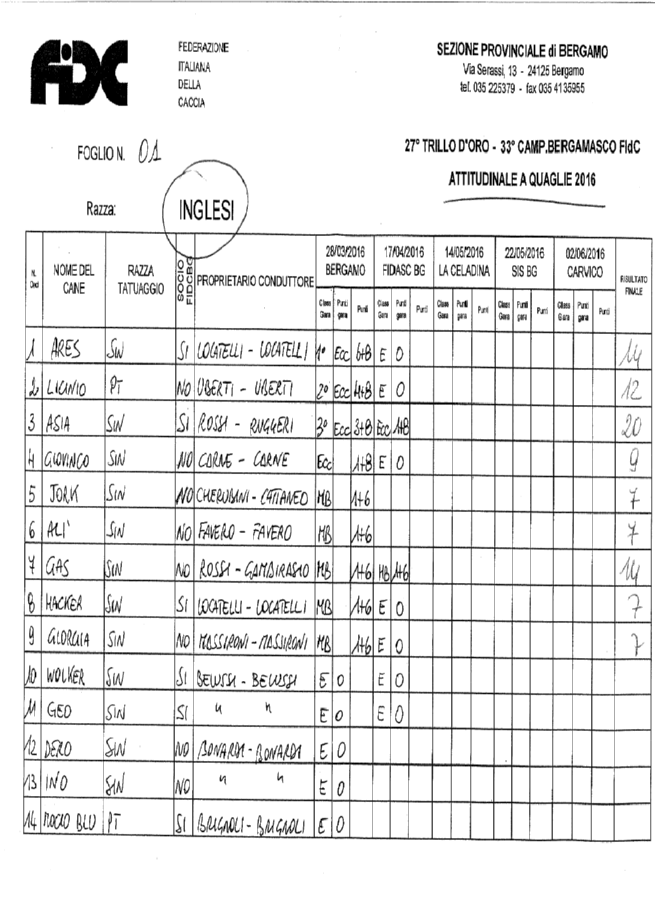 FIDC
FEDERAZIONE
ITALIANA
DELLA
CACCIA
SEZIONE PROVINCIALE di BERGAMO
Via Serassi, 13 - 24125 Bergamo
tel. 035 225379 - fax 035 4135955
FOGLIO N. 01
27° TRILLO D'ORO - 33° CAMP.BERGAMASCO FIdC
ATTITUDINALE A QUAGLIE 2016
Razza: INGLESI
N. Ord NOME DEL CANE RAZZA TATUAGGIO SOCIO FIDCBG PROPRIETARIO CONDUTTORE 28/03/2016 BERGANO 17/04/2016 FIDASC BG 14/05/2016 LA CELADINA 22/05/2016 SIS BG 02/06/2016 CARVICO RISULTATO FINALE
Class Gara Punti gara Punti Class Gara Punti gara Punti Class Gara Punti gara Punti Class Gara Punti gara Punti Class Gara Punti gara Punti
1 ARES SIN SI LOCATELLI - LOCATELLI 1° Ecc 6+8 E 0 14
2 LICINIO PT NO UBERTI - UBERTI 2° Ecc 4+8 E 0 12
3 ASIA SIN SI ROSSI - RUGGERI 3° Ecc 3+8 Ecc 1+8 20
4 GIOVINCO SIN NO CORNE - CORNE Ecc 1+8 E 0 9
5 JORK SIN NO CHERUBINI - CATTANEO MB 1+6 7
6 ALI' SIN NO FAVERO - FAVERO MB 1+6 7
7 GAS SIN NO ROSSI - GAMBIRASIO MB 1+6 MB 1+6 14
8 HACKER SIN SI LOCATELLI - LOCATELLI MB 1+6 E 0 7
9 GIORGIA SIN NO MASSIRONI - MASSIRONI MB 1+6 E 0 7
10 WOLKER SIN SI BELUSSI - BELUSSI E 0 E 0
11 GEO SIN SI " " E 0 E 0
12 DERO SIN NO BONARDI - BONARDI E 0
13 INO SIN NO " " E 0
14 ROCKO BLU PT SI BRIGNOLI - BRIGNOLI E 0